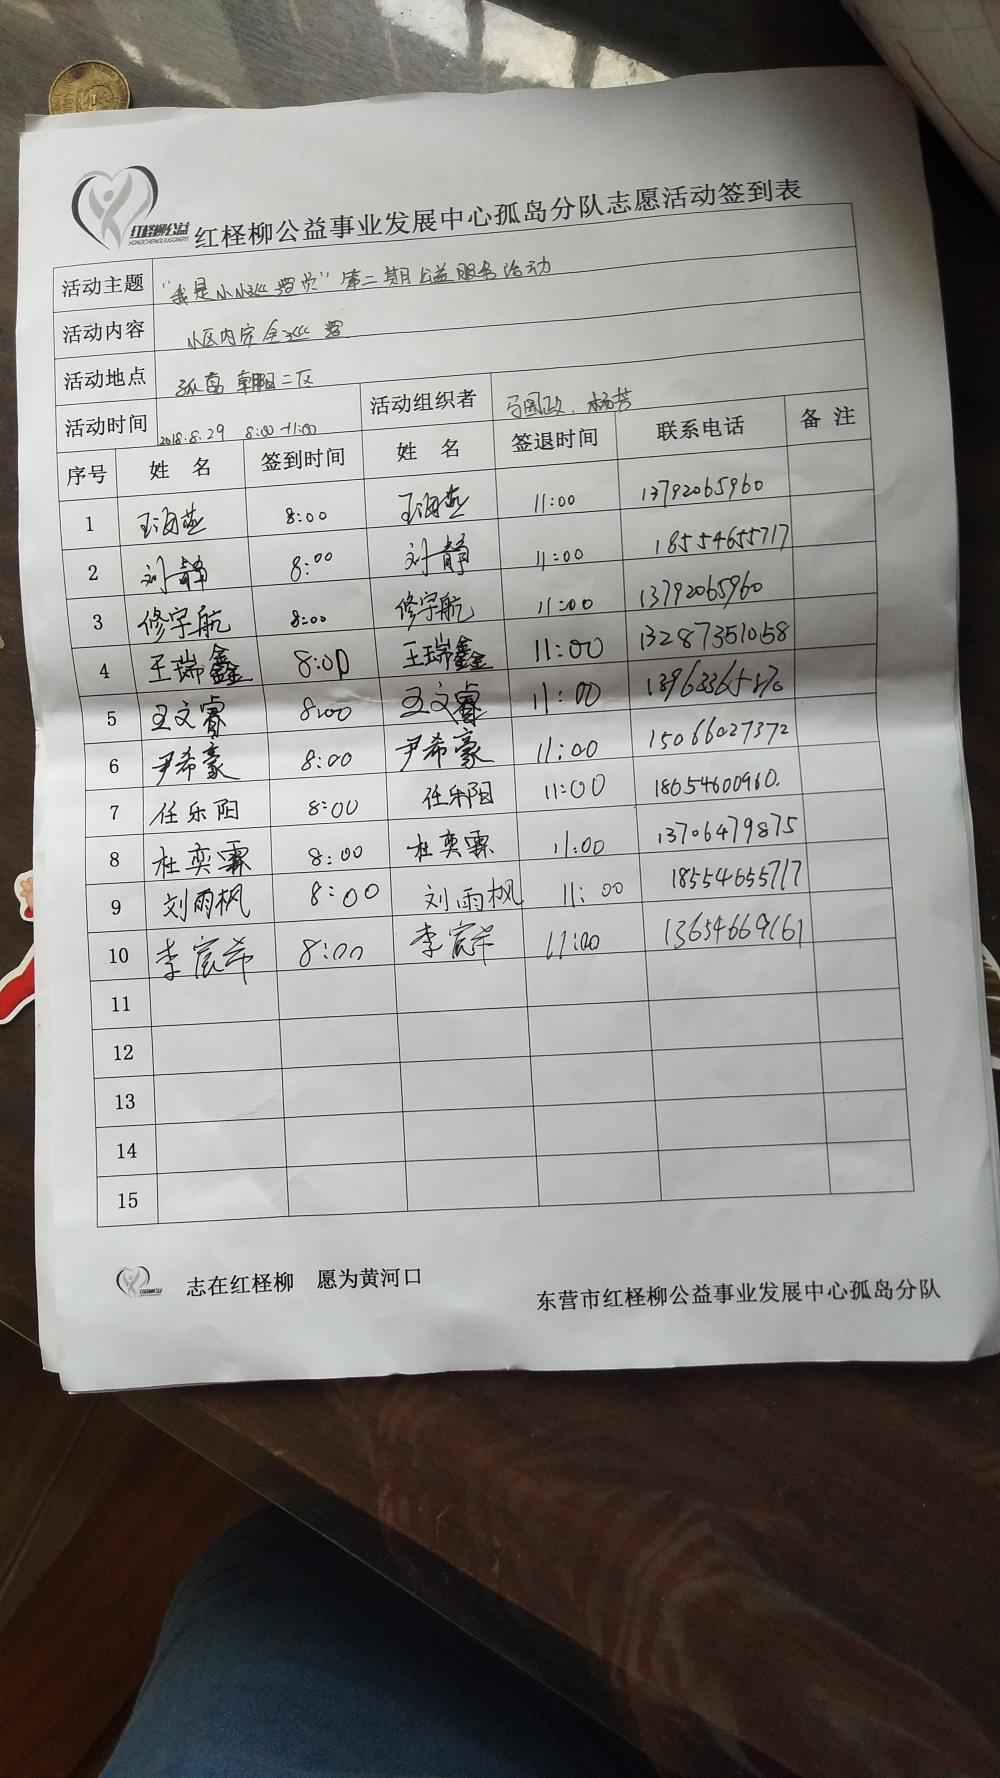 红柽柳公益
HONGCHENGLIUGONGYI
红柽柳公益事业发展中心孤岛分队志愿活动签到表
活动主题 "我是小小巡督员"第二期公益服务活动
活动内容 小区内安全巡督
活动地点 孤岛朝阳二区
活动时间 2018.8.29 8:00-11:00 活动组织者 马国政、杨芳
序号 姓 名 签到时间 姓 名 签退时间 联系电话 备 注
1 王海燕 8:00 王海燕 11:00 13792065960
2 刘静 8:00 刘静 11:00 18554655717
3 修宇航 8:00 修宇航 11:00 13792065960
4 王瑞鑫 8:00 王瑞鑫 11:00 13287351058
5 王文睿 8:00 王文睿 11:00
6 尹希豪 8:00 尹希豪 11:00 15066027372
7 任乐阳 8:00 任乐阳 11:00 18654600960.
8 杜奕霖 8:00 杜奕霖 11:00 13706479875
9 刘雨枫 8:00 刘雨枫 11:00 18554655717
10 李宸希 8:00 李宸希 11:00 13654669161
11
12
13
14
15
志在红柽柳 愿为黄河口
东营市红柽柳公益事业发展中心孤岛分队